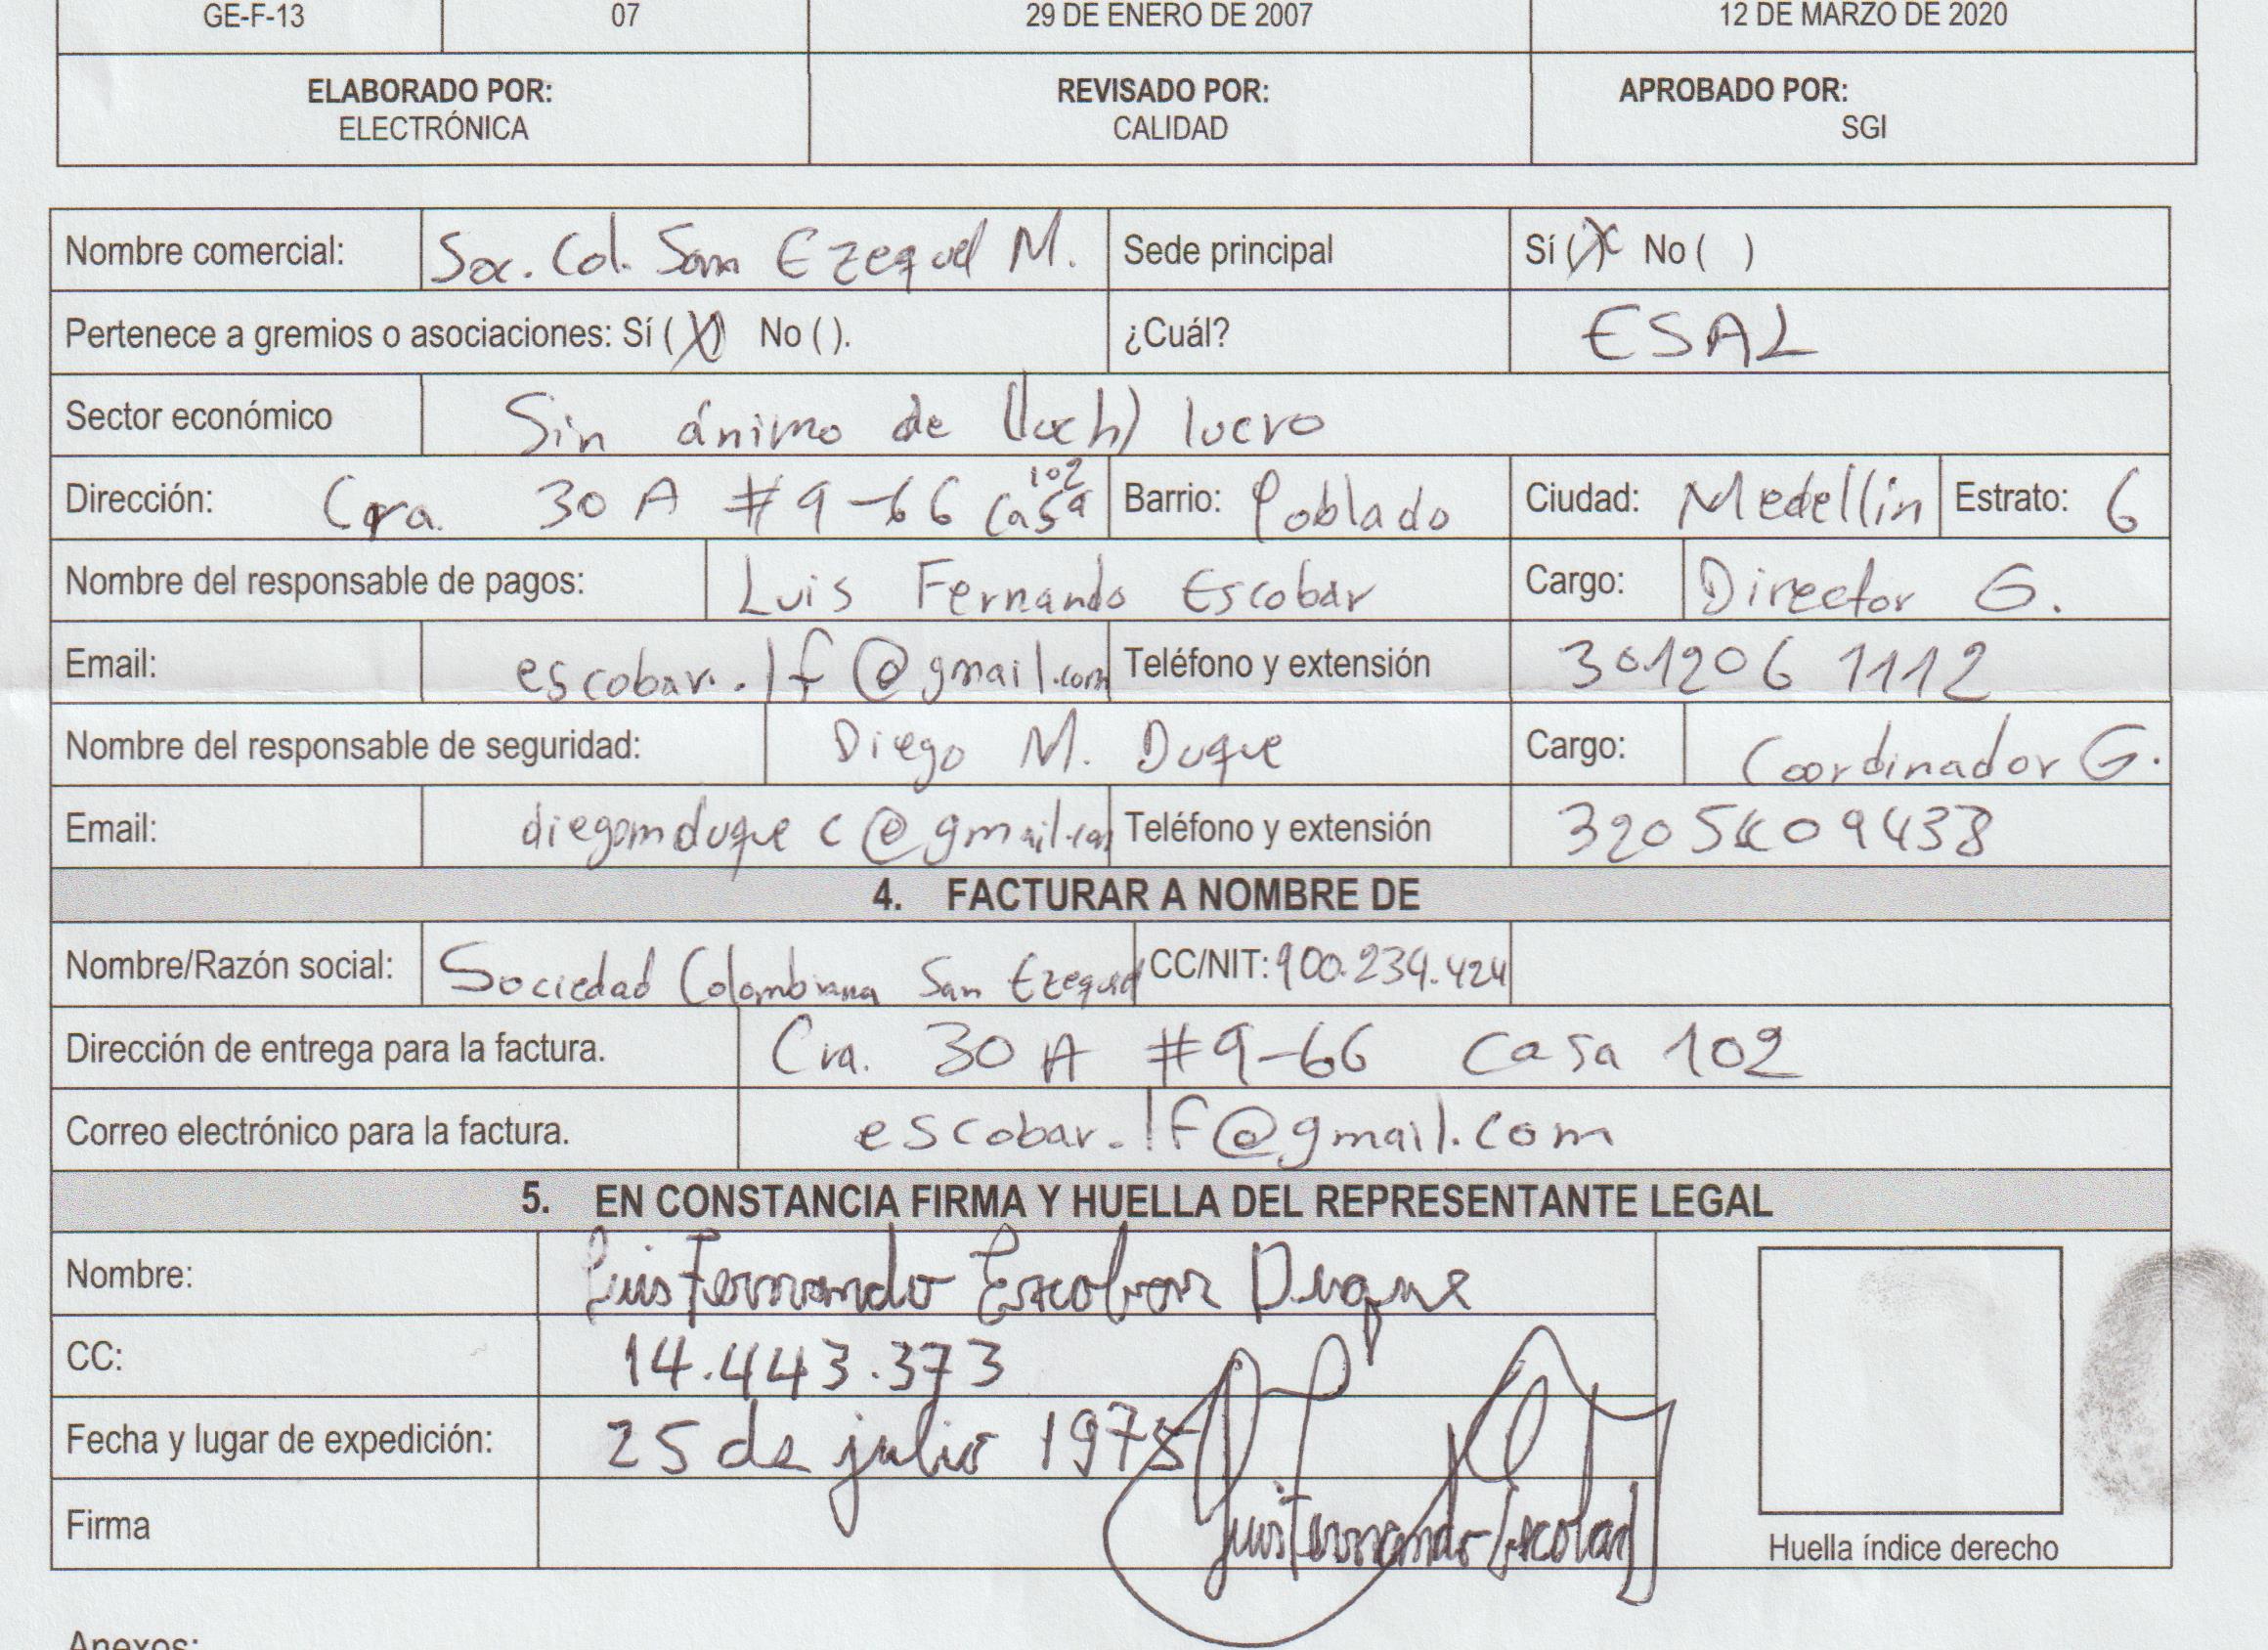 GE-F-13 07 29 DE ENERO DE 2007 12 DE MARZO DE 2020
ELABORADO POR: REVISADO POR: APROBADO POR:
ELECTRÓNICA CALIDAD SGI
Nombre comercial: Soc. Col. San Ezequiel M. Sede principal Sí (X) No ( )
Pertenece a gremios o asociaciones: Sí (X) No ( ). ¿Cuál? ESAL
Sector económico Sin ánimo de lucro
Dirección: Cra. 30 A #9-66 casa 102 Barrio: Poblado Ciudad: Medellín Estrato: 6
Nombre del responsable de pagos: Luis Fernando Escobar Cargo: Director G.
Email: escobar.lf@gmail.com Teléfono y extensión 301206 1112
Nombre del responsable de seguridad: Diego M. Duque Cargo: Coordinador G.
Email: diegomduquec@gmail.com Teléfono y extensión
4. FACTURAR A NOMBRE DE
Nombre/Razón social: Sociedad Colombiana San Ezequiel CC/NIT: 900.234.424
Dirección de entrega para la factura. Cra. 30 A #9-66 Casa 102
Correo electrónico para la factura. escobar.lf@gmail.com
5. EN CONSTANCIA FIRMA Y HUELLA DEL REPRESENTANTE LEGAL
Nombre: Luis Fernando Escobar Duque
CC: 14.443.373
Fecha y lugar de expedición: 25 de julio 1975
Firma Luis Fernando Escobar D
Huella índice derecho
Anexos: